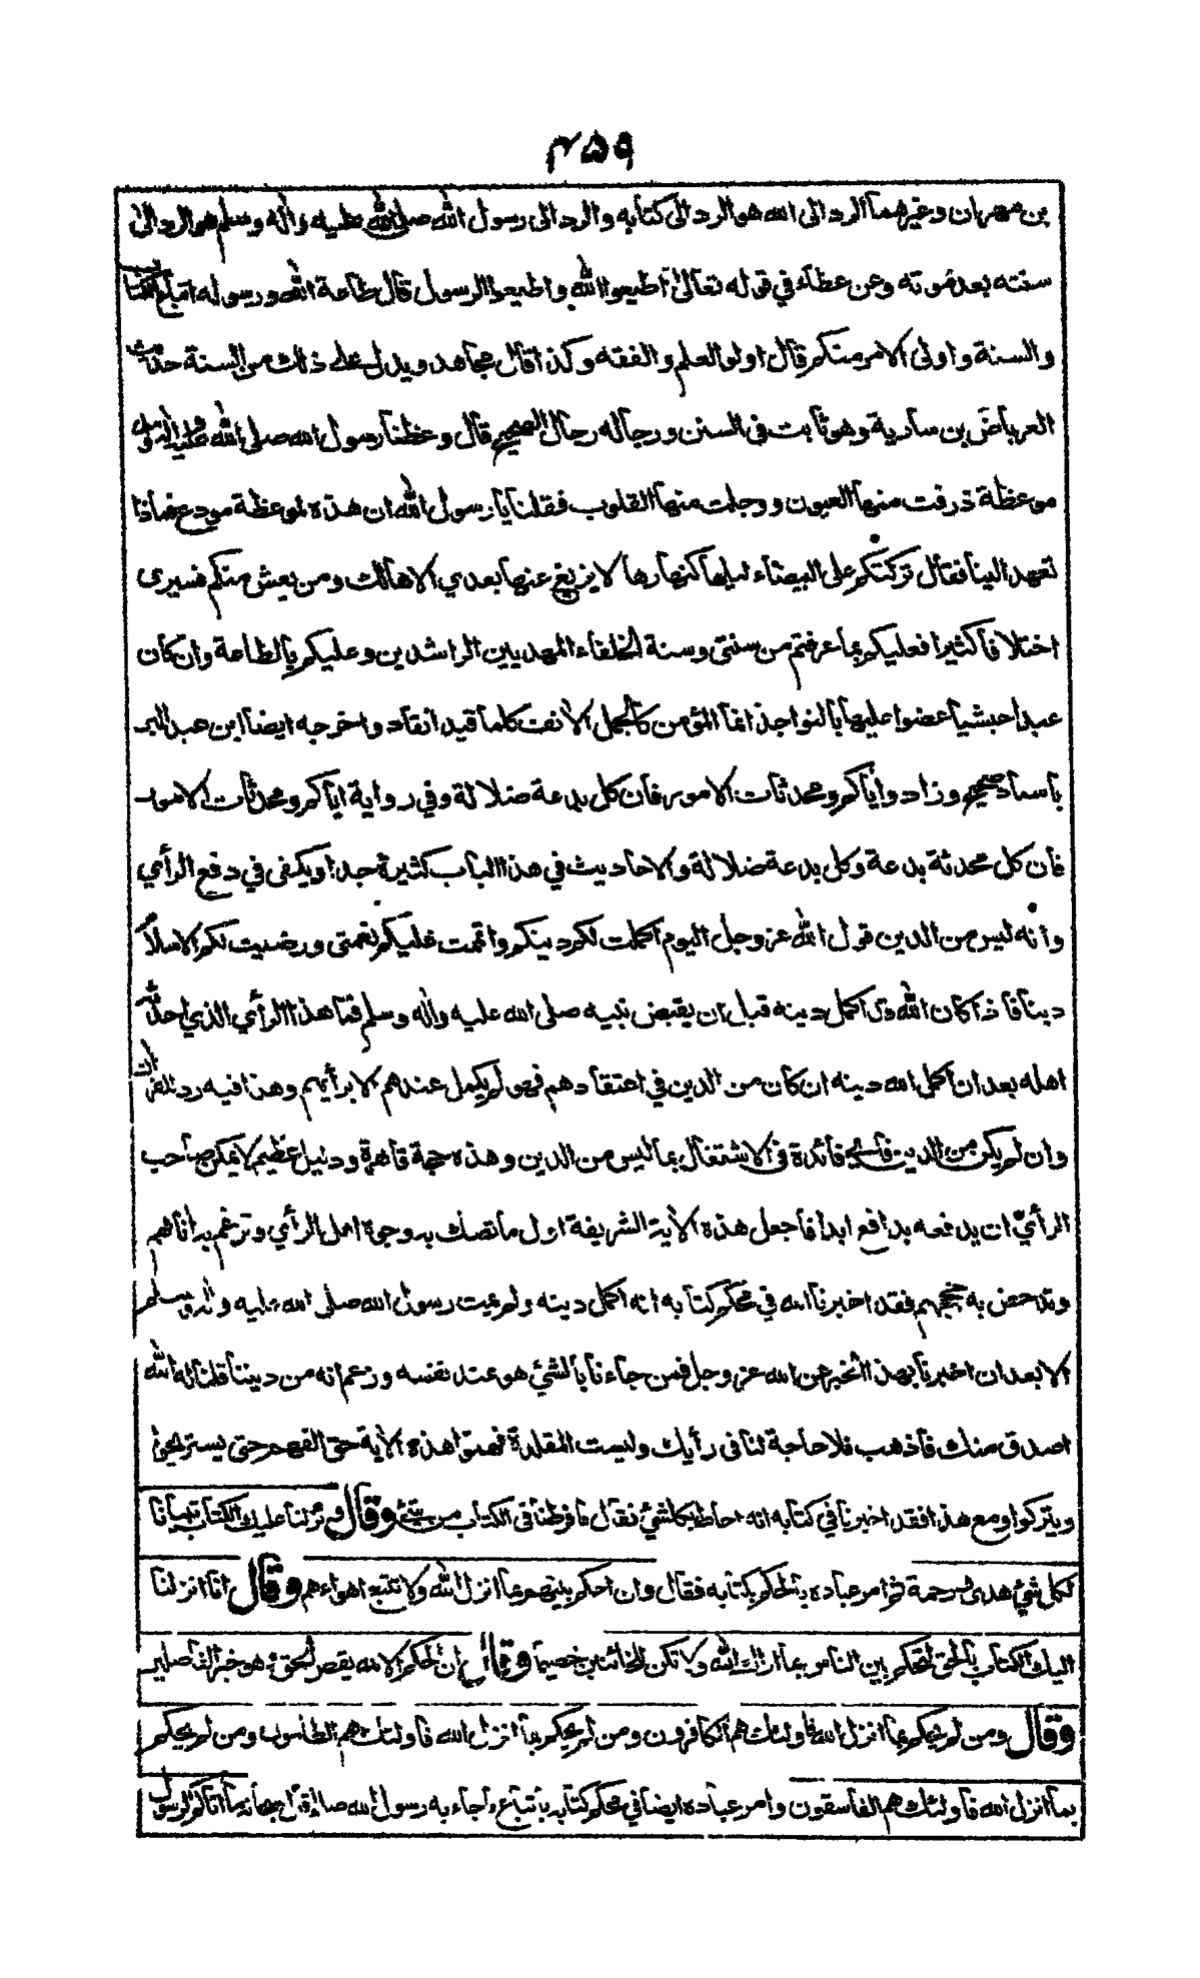 ۴۵۹
بن مهران وغيرهما الرد الى الله هو الرد الى كتابه والرد الى رسول الله صلى الله عليه وآله وسلم هو الرد الى
سنته بعد موته وعن عطاء في قوله تعالى اطيعوا الله واطيعوا الرسول قال طاعة الله ورسوله اتباع الكتاب
والسنة واولى الامر منكم قال اولو العلم والفقه وكذا قال مجاهد ويدل على ذلك من السنة حديث
العرباض بن سارية وهو ثابت في السنن ورجاله رجال الصحيح قال وعظنا رسول الله صلى الله عليه وآله وسلم
موعظة ذرفت منها العيون ووجلت منها القلوب فقلنا يا رسول الله ان هذه لموعظة مودع فماذا
تعهد الينا فقال تركتكم على البيضاء ليلها كنهارها لا يزيغ عنها بعدي الا هالك ومن يعش منكم فسيرى
اختلافا كثيرا فعليكم بما عرفتم من سنتي وسنة الخلفاء المهديين الراشدين وعليكم بالطاعة وان كان
عبدا حبشيا عضوا عليها بالنواجذ انما المؤمن كالجمل الانف كلما قيد انقاد واخرجه ايضا ابن عبد البر
باسناد صحيح وزاد واياكم ومحدثات الامور فان كل بدعة ضلالة وفي رواية اياكم ومحدثات الامور
فان كل محدثة بدعة وكل بدعة ضلالة والاحاديث في هذا الباب كثيرة جدا ويكفى في دفع الرأي
وانه ليس من الدين قول الله عز وجل اليوم اكملت لكم دينكم واتممت عليكم نعمتى ورضيت لكم الاسلام
دينا فاذا كان الله قد اكمل دينه قبل ان يقبض نبيه صلى الله عليه وآله وسلم فما هذا الرأي الذي احدثه
اهله بعد ان اكمل الله دينه ان كان من الدين في اعتقادهم فهو لم يكمل عندهم الا برأيهم وهذا فيه رد للقرآن
وان لم يكن من الدين فأي فائدة في الاشتغال بما ليس من الدين وهذه حجة قاهرة ودليل عظيم لا يمكن صاحب
الرأي ان يدفعه بدافع ابدا فاجعل هذه الآية الشريفة اول ما تصك به وجوه اهل الرأي وترغم به انافهم
وتدحض به حججهم فقد اخبرنا الله في محكم كتابه انه اكمل دينه ولم يمت رسول الله صلى الله عليه وآله وسلم
الا بعد ان اخبرنا بهذا الخبر عن الله عز وجل فمن جاءنا بالشئ هو عند نفسه وزعم انه من ديننا قلنا له الله
اصدق منك فاذهب فلا حاجة لنا في رأيك وليست المقلدة فهموا هذه الآية حق الفهم حتى يستريحوا
ويتركوا ومع هذا فقد اخبرنا في كتابه انه احاط بكل شئ فقال ما فرطنا في الكتاب من شئ وقال ونزلنا عليك الكتاب تبيانا
لكل شئ هدى ورحمة ثم امر عباده بالحكم بكتابه فقال وان احكم بينهم بما انزل الله ولا تتبع اهواءهم وقال انا انزلنا
اليك الكتاب بالحق لتحكم بين الناس بما اراك الله ولا تكن للخائنين خصيما وقال ان الحكم الا لله يقص الحق وهو خير الفاصلين
وقال ومن لم يحكم بما انزل الله فاولئك هم الكافرون ومن لم يحكم بما انزل الله فاولئك هم الظالمون ومن لم يحكم
بما انزل الله فاولئك هم الفاسقون وامر عباده ايضا في محكم كتابه باتباع ما جاء به رسول الله صلى فقال وما اتاكم الرسول